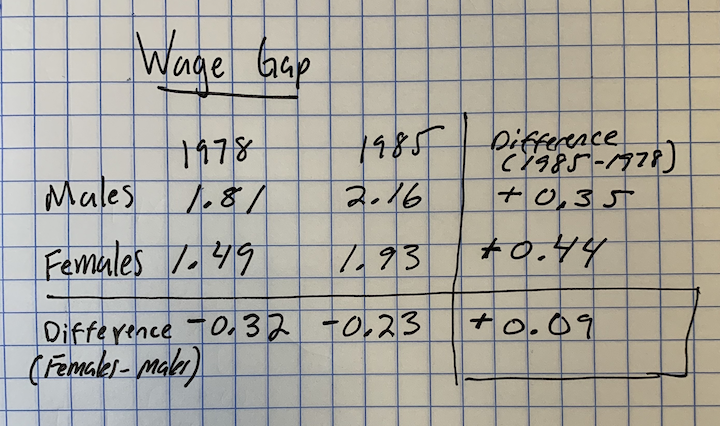 Wage Gap
1978 1985 Difference
(1985-1978)
Males 1.81 2.16 + 0.35
Females 1.49 1.93 +0.44
Difference -0.32 -0.23 +0.09
(Females-males)